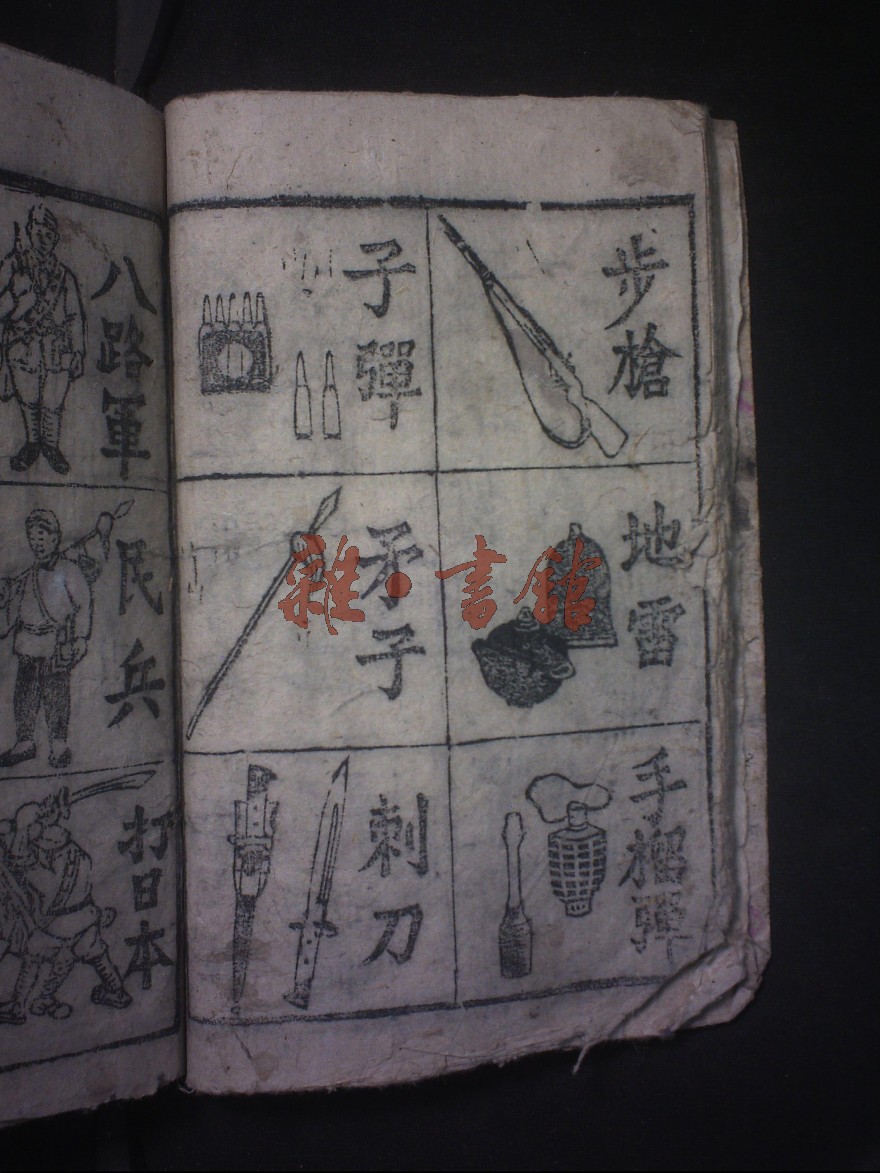 步槍
地雷
手榴彈
子彈
矛子
刺刀
八路軍
民兵
打日本
雜·書館